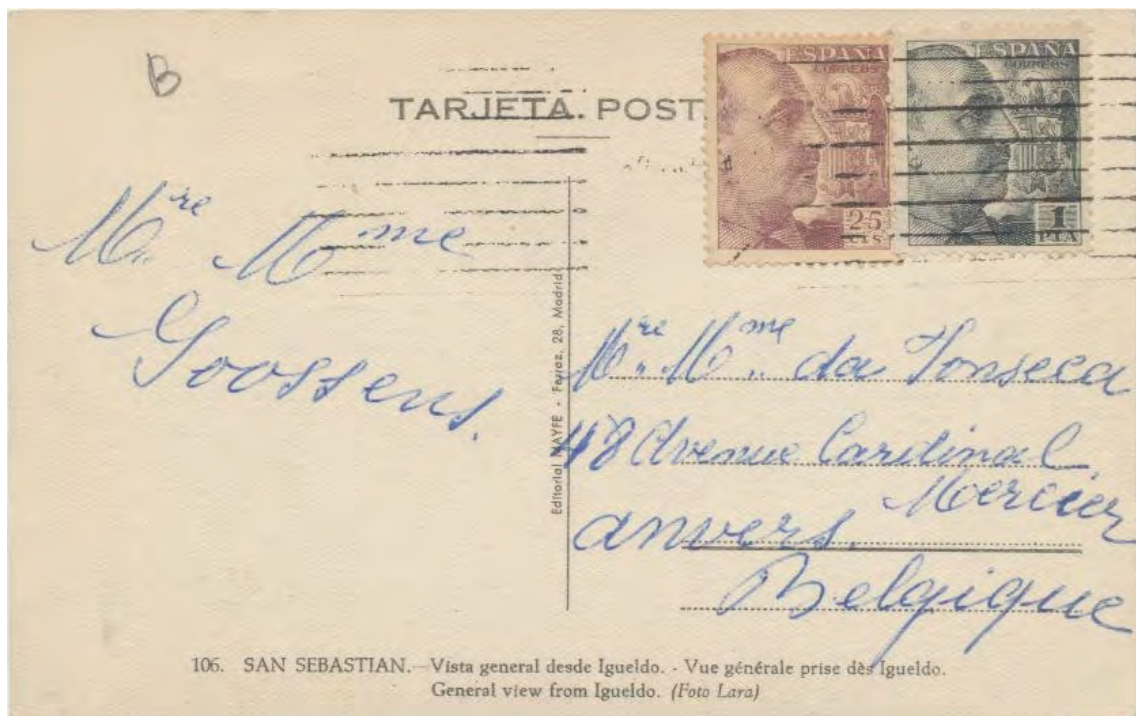 B
TARJETA POST
ESPAÑA
CORREOS
25
CTS
ESPAÑA
CORREOS
1
PTA
Mre Mme
Goossens.
Editorial MAYFE - Ferraz, 28, Madrid
Mre Mme da Fonseca
48 Avenue Cardinal
Mercier
Anvers.
Belgique
106. SAN SEBASTIAN.—Vista general desde Igueldo. - Vue générale prise dès Igueldo.
General view from Igueldo. (Foto Lara)